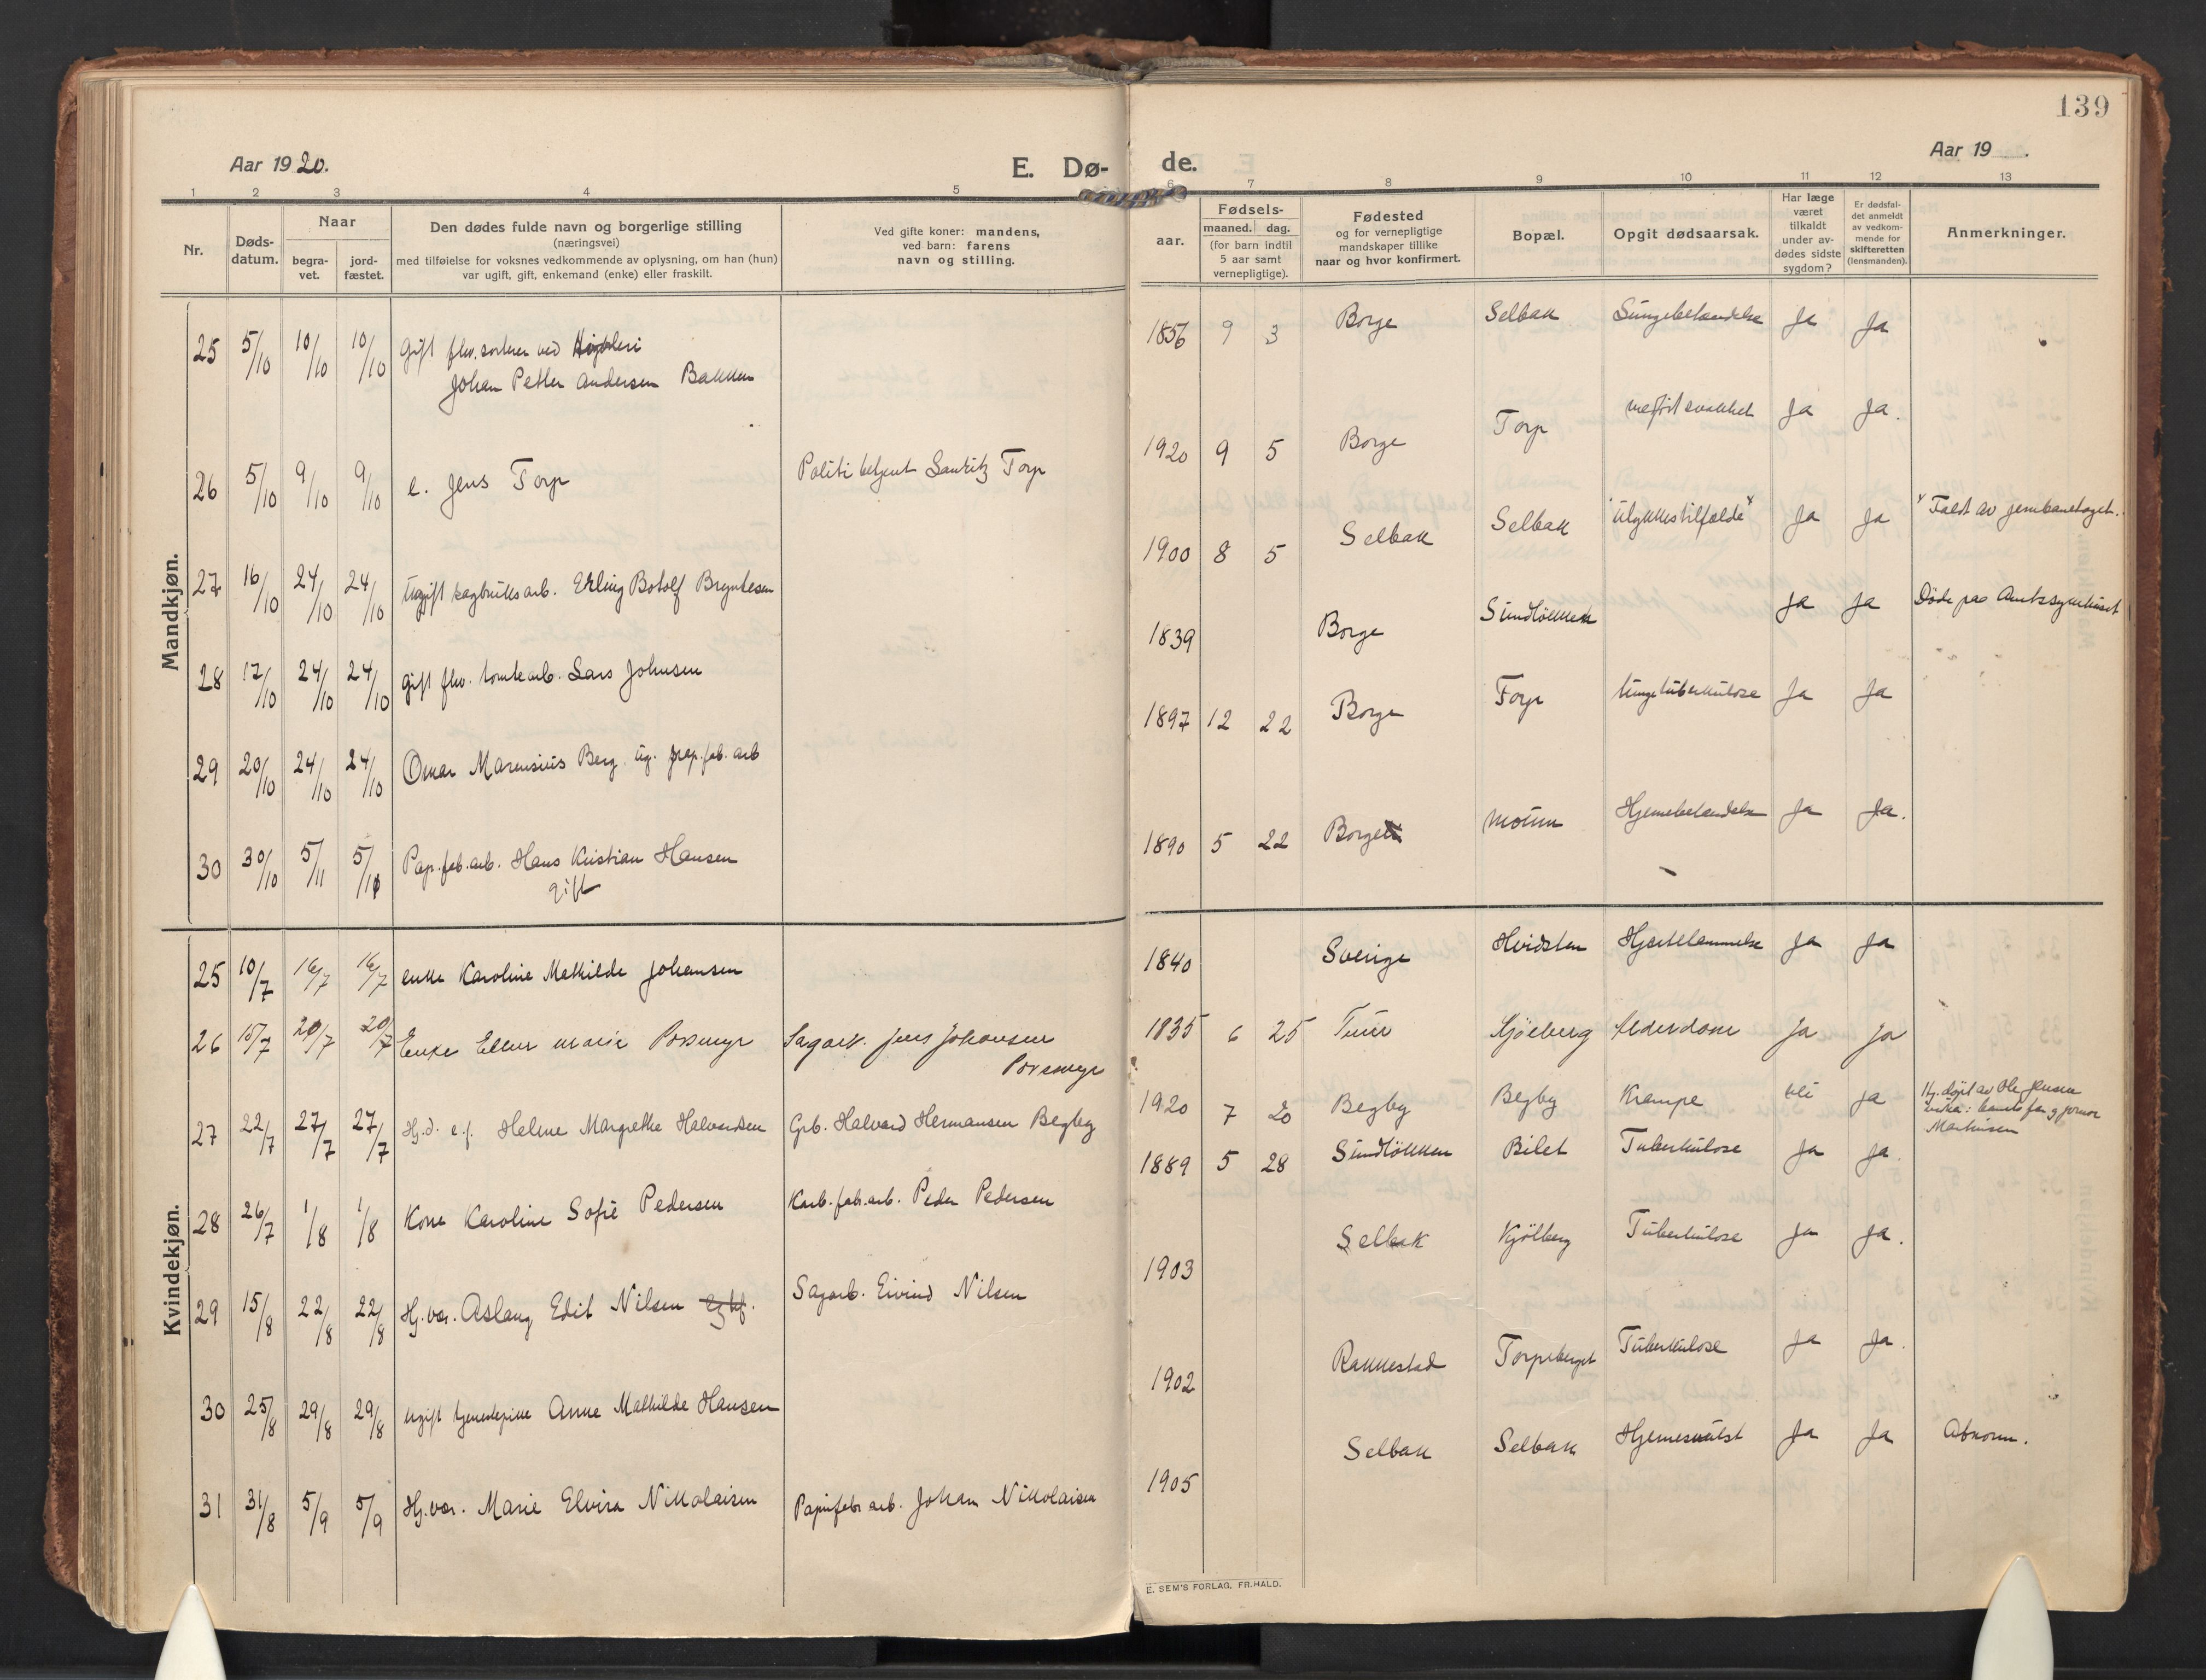 139
Aar 1920.
E. Dø-
de.
Aar 19 .
1 2 3 4 5 6 7 8 9 10 11 12 13
Nr.
Døds-
datum.
Naar
begra-
vet.
jord-
fæstet.
Den dødes fulde navn og borgerlige stilling
(næringsvei)
med tilføielse for voksnes vedkommende av oplysning, om han (hun)
var ugift, gift, enkemand (enke) eller fraskilt.
Ved gifte koner: mandens,
ved barn: farens
navn og stilling.
aar.
Fødsels-
maaned. dag.
(for barn indtil
5 aar samt
vernepligtige).
Fødested
og for vernepligtige
mandskaper tillike
naar og hvor konfirmert.
Bopæl.
Opgit dødsaarsak.
Har læge
været
tilkaldt
under av-
dødes sidste
sygdom?
Er dødsfal-
det anmeldt
av vedkom-
mende for
skifteretten
(lensmanden).
Anmerkninger.
Mandkjøn.
25 5/10 10/10 10/10 Gift flv. sorterer ved
Johan Petter Andersen Bakken
1856 9 3 Borge Selbak Lungebetændelse Ja Ja
26 5/10 9/10 9/10 e. Jens Torp Politibetjent Lauritz Torp 1920 9 5 Borge Torp medfödt svakhet Ja Ja.
27 16/10 24/10 24/10 Ugift sagbruksarb. Erling Botolf Bryntesen 1900 8 5 Selbak Selbak Ulykkestilfælde Ja Ja Faldt av jernbanetoget.
28 17/10 24/10 24/10 gift flv. tomtearb. Lars Johnsen 1839 Borge Sundlökken Ja Ja Döde paa Amtssykehuset
29 20/10 24/10 24/10 Omar Marensius Berg ug. pap.fab.arb 1897 12 22 Borge Torp lungetuberkulose Ja Ja
30 30/10 5/11 5/11 Pap.fab.arb. Hans Kristian Hansen
gift
1890 5 22 Borge Moum Hjernebetændelse Ja Ja.
Kvindekjøn.
25 10/7 16/7 16/7 enke Karoline Mathilde Johansen 1840 Sverige Hvidsten Hjertelammelse Ja Ja
26 15/7 20/7 20/7 Enke Ellen Marie Porsmyr Sagarb. Jens Johansen
Porsmyr
1835 6 25 Tune Kjölberg Alderdom Ja Ja
27 22/7 27/7 27/7 Hj.d. e.f. Helene Margrethe Halvardsen Grb. Halvard Hermansen Begby 1920 7 20 Begby Begby Krampe Nei Ja Hj. döpt av Ole Jensen
28 26/7 1/8 1/8 Kone Karoline Sofie Pedersen Karb.fab.arb. Peder Pedersen 1889 5 28 Sundlökken Bilet Tuberkulose Ja Ja.
29 15/8 22/8 22/8 Hj.vær. Aslaug Edit Nilsen Sagarb. Eivind Nilsen 1903 Selbak Kjölberg Tuberkulose Ja Ja.
30 25/8 29/8 29/8 Ugift tjenestepike Anne Mathilde Hansen 1902 Rakkestad Torpeberget Tuberkulose Ja Ja.
31 31/8 5/9 5/9 Hj.vær. Marie Elvira Nikolaisen Papirfabr.arb. Johan Nikolaisen 1905 Selbak Selbak Hjernesvulst Ja Ja Abnorm.
E. SEM'S FORLAG, FR.HALD.